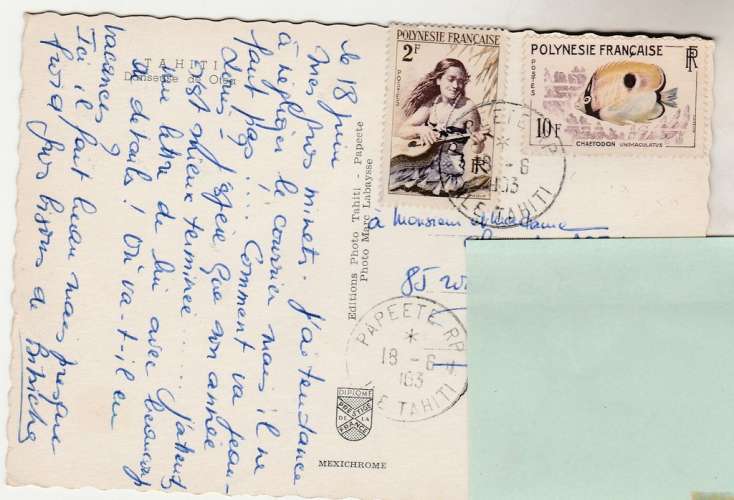 TAHITI
Danseuse de Otea
le 18 juin
mes gros minets. J'ai tendance
à négliger le courrier mais il ne
faut pas.... Comment va Jean-
Louis? J'espère que son année
s'est mieux terminée..... J'attends
une lettre de lui avec beaucoup
de détails! Où va-t-il en
vacances?
Ici il fait beau mais presque
froid. Gros bisous de
Editions Photo Tahiti - Papeete
Photo Marc Labaysse
DIPLOME
PRESTIGE
DE LA
FRANCE
MEXICHROME
2F
POLYNESIE FRANÇAISE
POSTES
RF
POLYNESIE FRANÇAISE
POSTES
RF
10F
CHAETODON UNIMACULATUS
PAPEETE RP
18 - 6
163
ILE TAHITI
à Monsieur et Madame
85
PAPEETE RP
18 - 6
163
ILE TAHITI